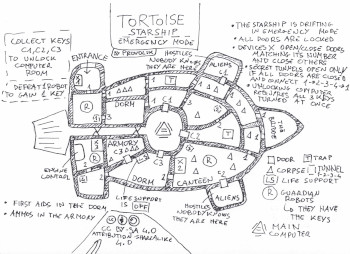 TORTOISE
STARSHIP
EMERGENCY MODE
COLLECT KEYS
C1, C2, C3
TO UNLOCK
COMPUTER
ROOM
DEFEAT 1 ROBOT
TO GAIN 1 KEY
ENTRANCE
HOSTILES
NOBODY KNOWS
THEY ARE HERE
ALIENS
• THE STARSHIP IS DRIFTING
IN EMERGENCY MODE
• ALL DOORS ARE LOCKED
MATCHING ITS NUMBER
AND CLOSE OTHERS
• SECRET TUNNELS OPEN ONLY
IF ALL DOORS ARE CLOSED
• UNLOCKING COMPUTER
REQUIRES ALL 3 KEYS
TURNED AT ONCE
DORM
ARMORY
ENGINE
CONTROL
DORM
CANTEEN
LIFE SUPPORT
IS OFF
HOSTILES
NOBODY KNOWS
THEY ARE HERE
ALIENS
DOOR
TRAP
CORPSE
TUNNEL
LIFE SUPPORT
GUARDIAN
ROBOTS
THEY HAVE
THE KEYS
MAIN
COMPUTER
• FIRST AIDS IN THE DORM
• AMMOS IN THE ARMORY
CC BY-SA 4.0
ATTRIBUTION-SHAREALIKE
4.0